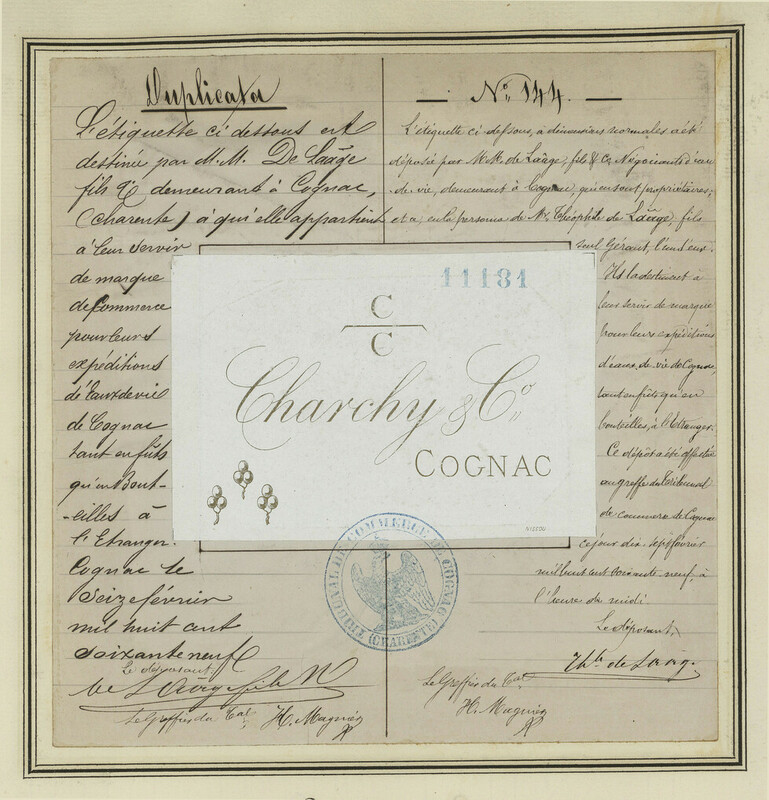 Duplicata
L'étiquette ci dessous est
destinée par M.M. De Laâge
fils & Cie demeurant à Cognac,
(charente) à qui elle appartient
à leur servir
de marque
de Commerce
pour leurs
expéditions
d'Eaux de vie
de Cognac
tant en fûts
qu'en Bout-
-eilles à
l'Etranger.
Cognac le
Seize février
mil huit cent
soixante neuf
Le déposant
de Laâge fils &
Le Greffier du Tal
H. Magnier
No 144.
L'étiquette ci-dessous, à dimensions normales a été
déposée par M.M. de Laâge, fils & Cie Négociants d'eau
de vie, demeurant à Cognac, qui en sont propriétaires,
et a, en la personne de Mr Théophile de Laâge, fils
seul Gérant, l'un d'eux.
Ils la destinent à
leur servir de marque
pour leurs expéditions
d'eaux-de-vie de Cognac,
tant en fûts qu'en
bouteilles, à l'Etranger.
Ce dépôt a été effectué
au greffe du Tribunal
de commerce de Cognac
ce jour dix-sept février
mil huit cent soixante neuf, à
l'heure de midi.
Le déposant,
Thle de Laâge.
Le Greffier du Tal
H. Magnier
11181
C
C
Charchy & Co
COGNAC
TRIBUNAL DE COMMERCE DE COGNAC
(CHARENTE)